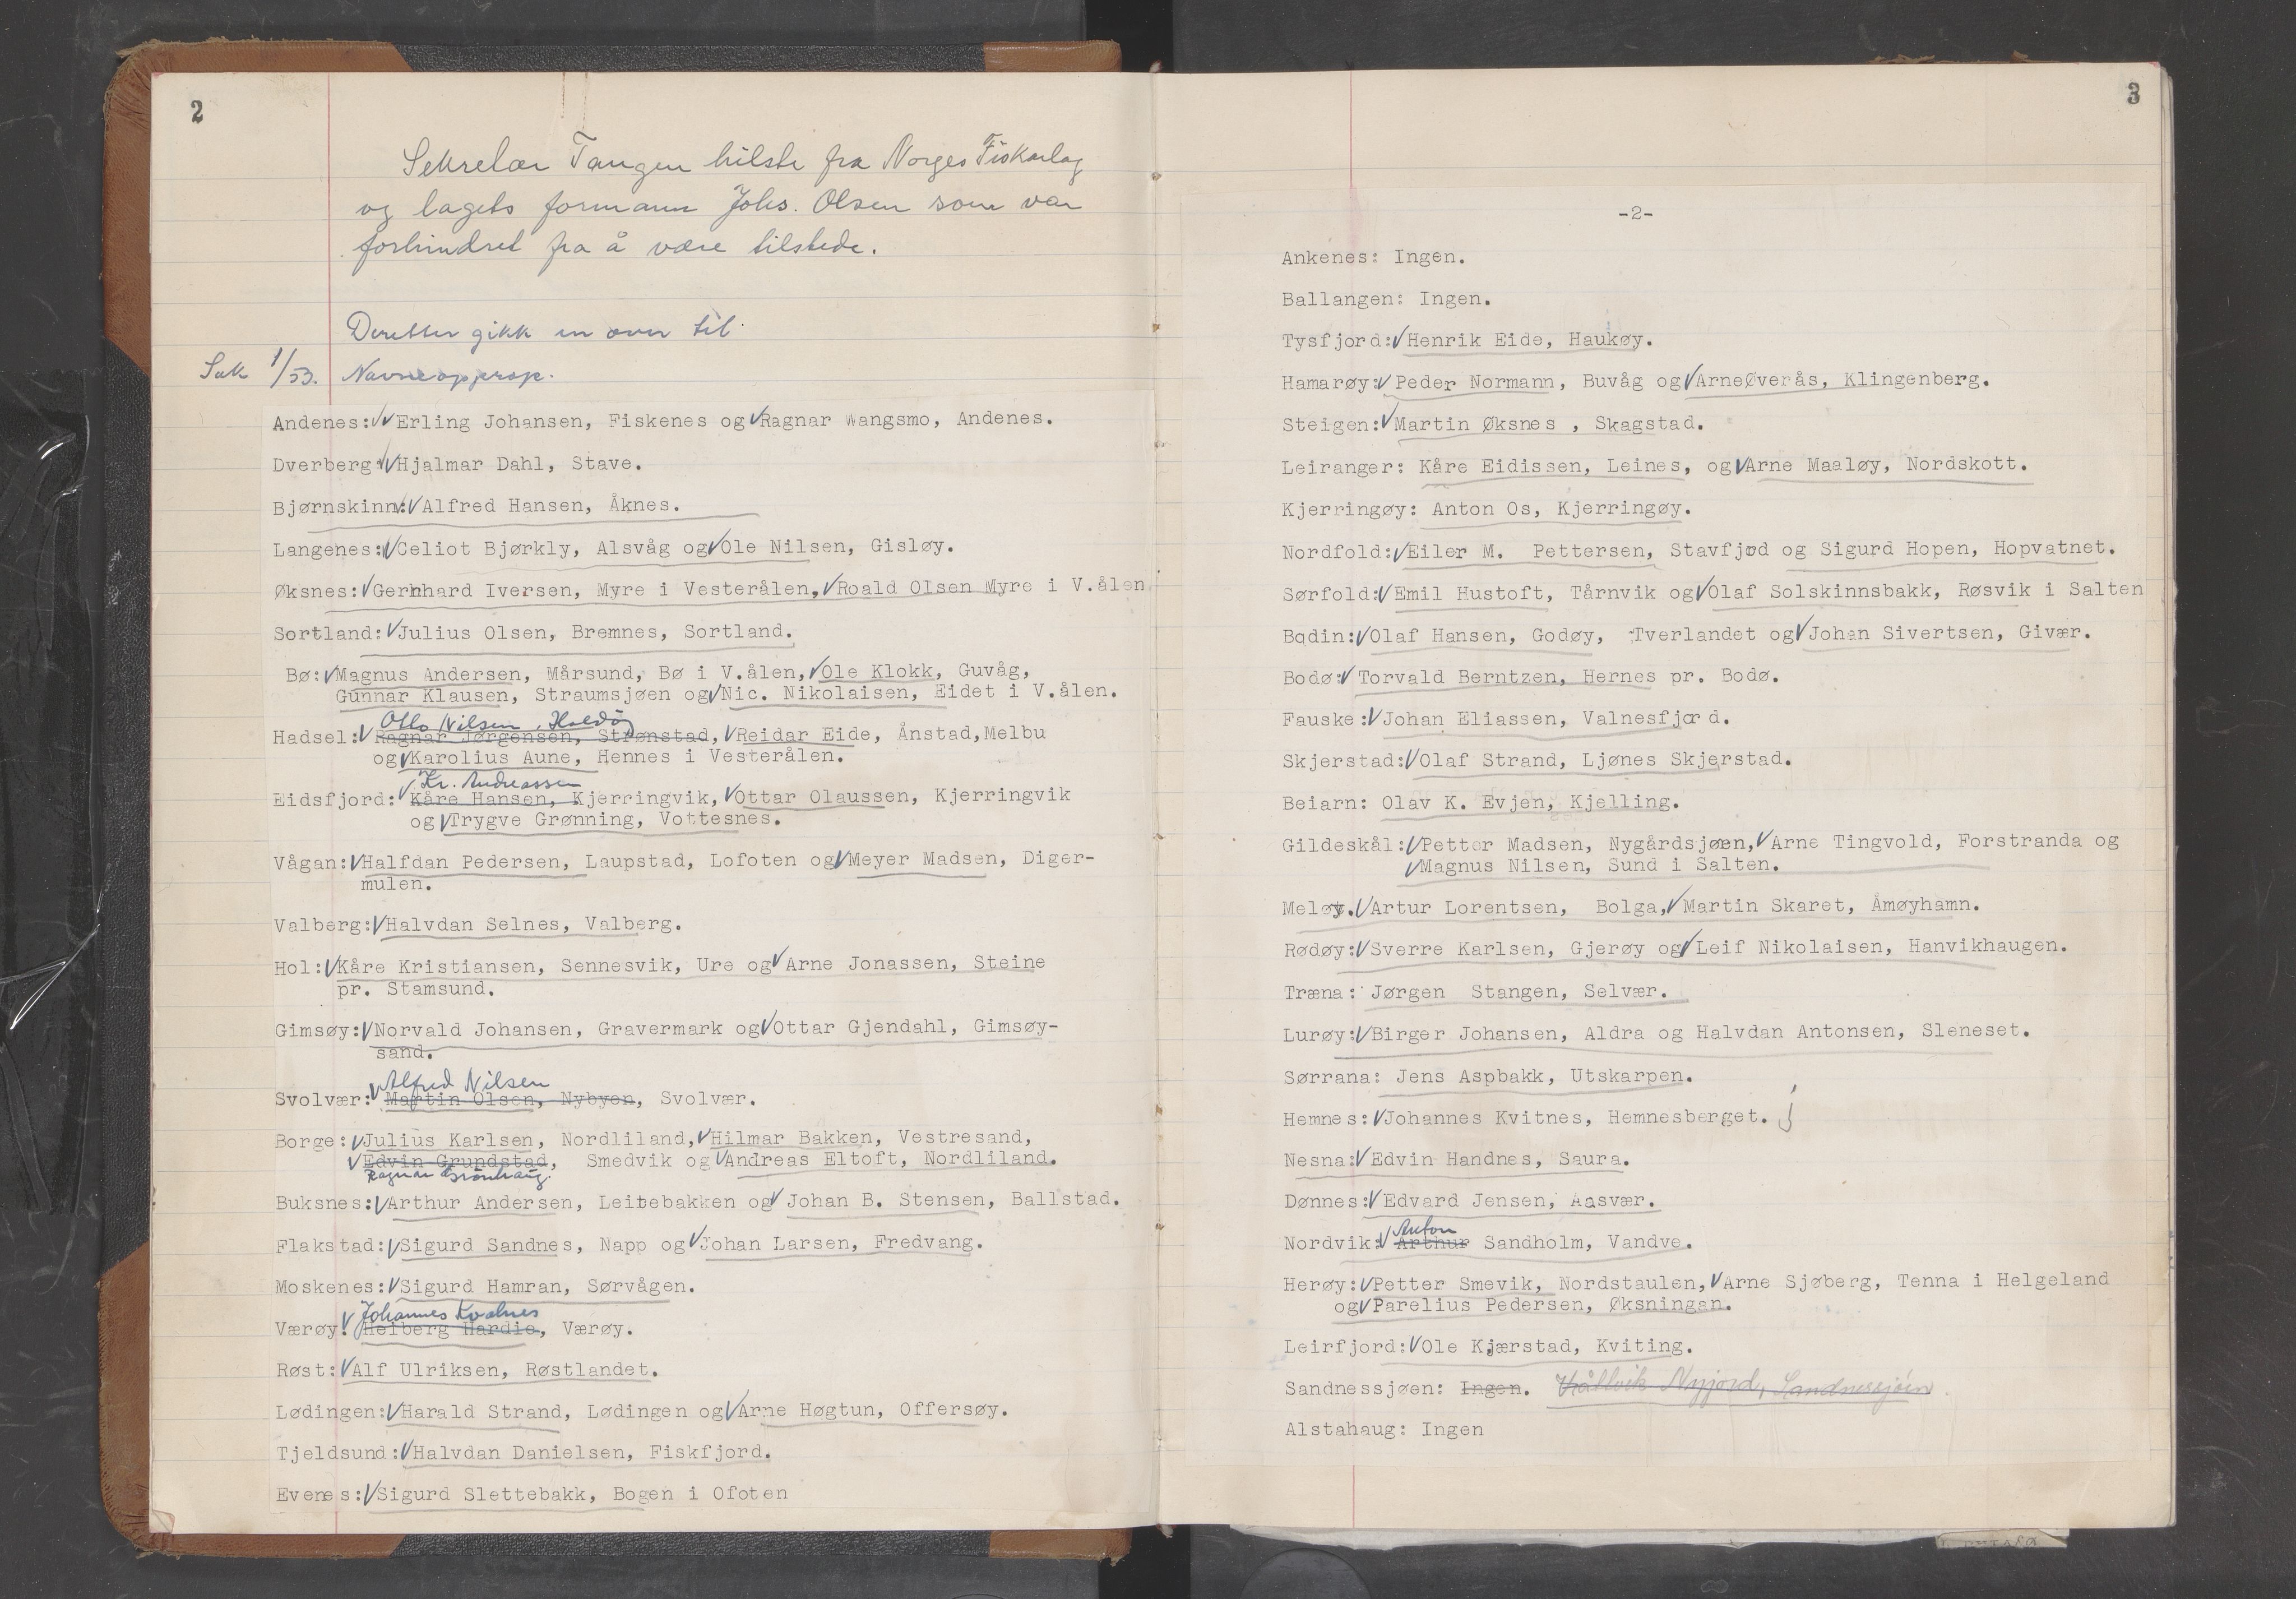 2
Sekretær Tangen hilste fra Norges Fiskarlag
og lagets formann Johs. Olsen som var
forhindret fra å være tilstede.
Deretter gikk en over til
Sak 1/53. Navneopprop.
Andenes: Erling Johansen, Fiskenes og Ragnar Wangsmo, Andenes.
Dverberg: Hjalmar Dahl, Stave.
Bjørnskinn: Alfred Hansen, Åknes.
Langenes: Celiot Bjørkly, Alsvåg og Ole Nilsen, Gisløy.
Øksnes: Gerhhard Iversen, Myre i Vesterålen, Roald Olsen Myre i V.ålen
Sortland: Julius Olsen, Bremnes, Sortland.
Bø: Magnus Andersen, Mårsund, Bø i V.ålen, Ole Klokk, Guvåg,
Gunnar Klausen, Straumsjøen og Nic. Nikolaisen, Eidet i V.ålen.
Otto Nilsen, Haldö
Hadsel: Ragnar Jørgensen, Strønstad, Reidar Eide, Ånstad, Melbu
og Karolius Aune, Hennes i Vesterålen.
Kr. Andreassen
Eidsfjord: Kåre Hansen, Kjerringvik, Ottar Olaussen, Kjerringvik
og Trygve Grønning, Vottesnes.
Vågan: Halfdan Pedersen, Laupstad, Lofoten og Meyer Madsen, Diger-
mulen.
Valberg: Halvdan Selnes, Valberg.
Hol: Kåre Kristiansen, Sennesvik, Ure og Arne Jonassen, Steine
pr. Stamsund.
Gimsøy: Norvald Johansen, Gravermark og Ottar Gjendahl, Gimsøy-
sand.
Alfred Nilsen
Svolvær: Martin Olsen, Nybyen, Svolvær.
Borge: Julius Karlsen, Nordliland, Hilmar Bakken, Vestresand,
Edvin Grundstad, Smedvik og Andreas Eltoft, Nordliland.
Ragnar Grönhaug.
Buksnes: Arthur Andersen, Leitebakken og Johan B. Stensen, Ballstad.
Flakstad: Sigurd Sandnes, Napp og Johan Larsen, Fredvang.
Moskenes: Sigurd Hamran, Sørvågen.
Johannes
Værøy: Heiberg Hardie, Værøy.
Røst: Alf Ulriksen, Røstlandet.
Lødingen: Harald Strand, Lødingen og Arne Høgtun, Offersøy.
Tjeldsund: Halvdan Danielsen, Fiskfjord.
Evenes: Sigurd Slettebakk, Bogen i Ofoten
3
-2-
Ankenes: Ingen.
Ballangen: Ingen.
Tysfjord: Henrik Eide, Haukøy.
Hamarøy: Peder Normann, Buvåg og Arne Øverås, Klingenberg.
Steigen: Martin Øksnes , Skagstad.
Leiranger: Kåre Eidissen, Leines, og Arne Maaløy, Nordskott.
Kjerringøy: Anton Os, Kjerringøy.
Nordfold: Eiler M. Pettersen, Stavfjord og Sigurd Hopen, Hopvatnet.
Sørfold: Emil Hustoft, Tårnvik og Olaf Solskinnsbakk, Røsvik i Salten
Bodin: Olaf Hansen, Godøy, Tverlandet og Johan Sivertsen, Givær.
Bodø: Torvald Berntzen, Hernes pr. Bodø.
Fauske: Johan Eliassen, Valnesfjord.
Skjerstad: Olaf Strand, Ljønes Skjerstad.
Beiarn: Olav K. Evjen, Kjelling.
Gildeskål: Petter Madsen, Nygårdsjøen, Arne Tingvold, Forstranda og
Magnus Nilsen, Sund i Salten.
Meløy. Artur Lorentsen, Bolga, Martin Skaret, Åmøyhamn.
Rødøy: Sverre Karlsen, Gjerøy og Leif Nikolaisen, Hanvikhaugen.
Træna: Jørgen Stangen, Selvær.
Lurøy: Birger Johansen, Aldra og Halvdan Antonsen, Sleneset.
Sørrana: Jens Aspbakk, Utskarpen.
Hemnes: Johannes Kvitnes, Hemnesberget.
Nesna: Edvin Handnes, Saura.
Dønnes: Edvard Jensen, Aasvær.
Anton
Nordvik: Arthur Sandholm, Vandve.
Herøy: Petter Smevik, Nordstaulen, Arne Sjøberg, Tenna i Helgeland
og Parelius Pedersen, Øksningan.
Leirfjord: Ole Kjærstad, Kviting.
Sandnessjøen: Ingen. Nyjord, Sandnessjöen.
Alstahaug: Ingen